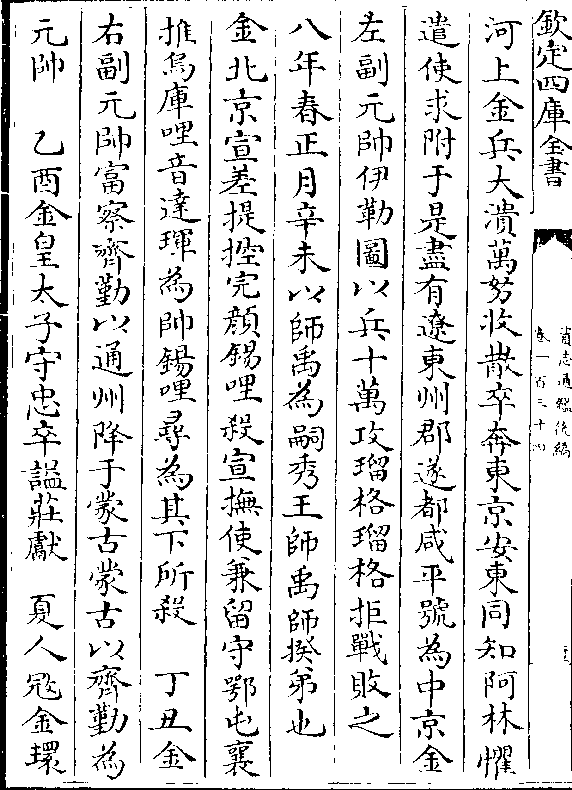 欽定四庫全書
資治通鑑後編
卷一百三十四
河上金兵大潰萬努收散卒奔東京安東同知阿林懼
遣使求附于是盡有遼東州郡遂都咸平號為中京金
左副元帥伊勒圖以兵十萬攻瑠格瑠格拒戰敗之
八年春正月辛未以師禹為嗣秀王師禹師揆弟也
金北京宣差提控完顔錫哩殺宣撫使兼留守鄂屯襄
推烏庫哩音達琿為帥錫哩尋為其下所殺　丁丑金
右副元帥富察齊勤以通州降于蒙古蒙古以齊勤為
元帥　乙酉金皇太子守忠卒諡莊獻　夏人宼金環